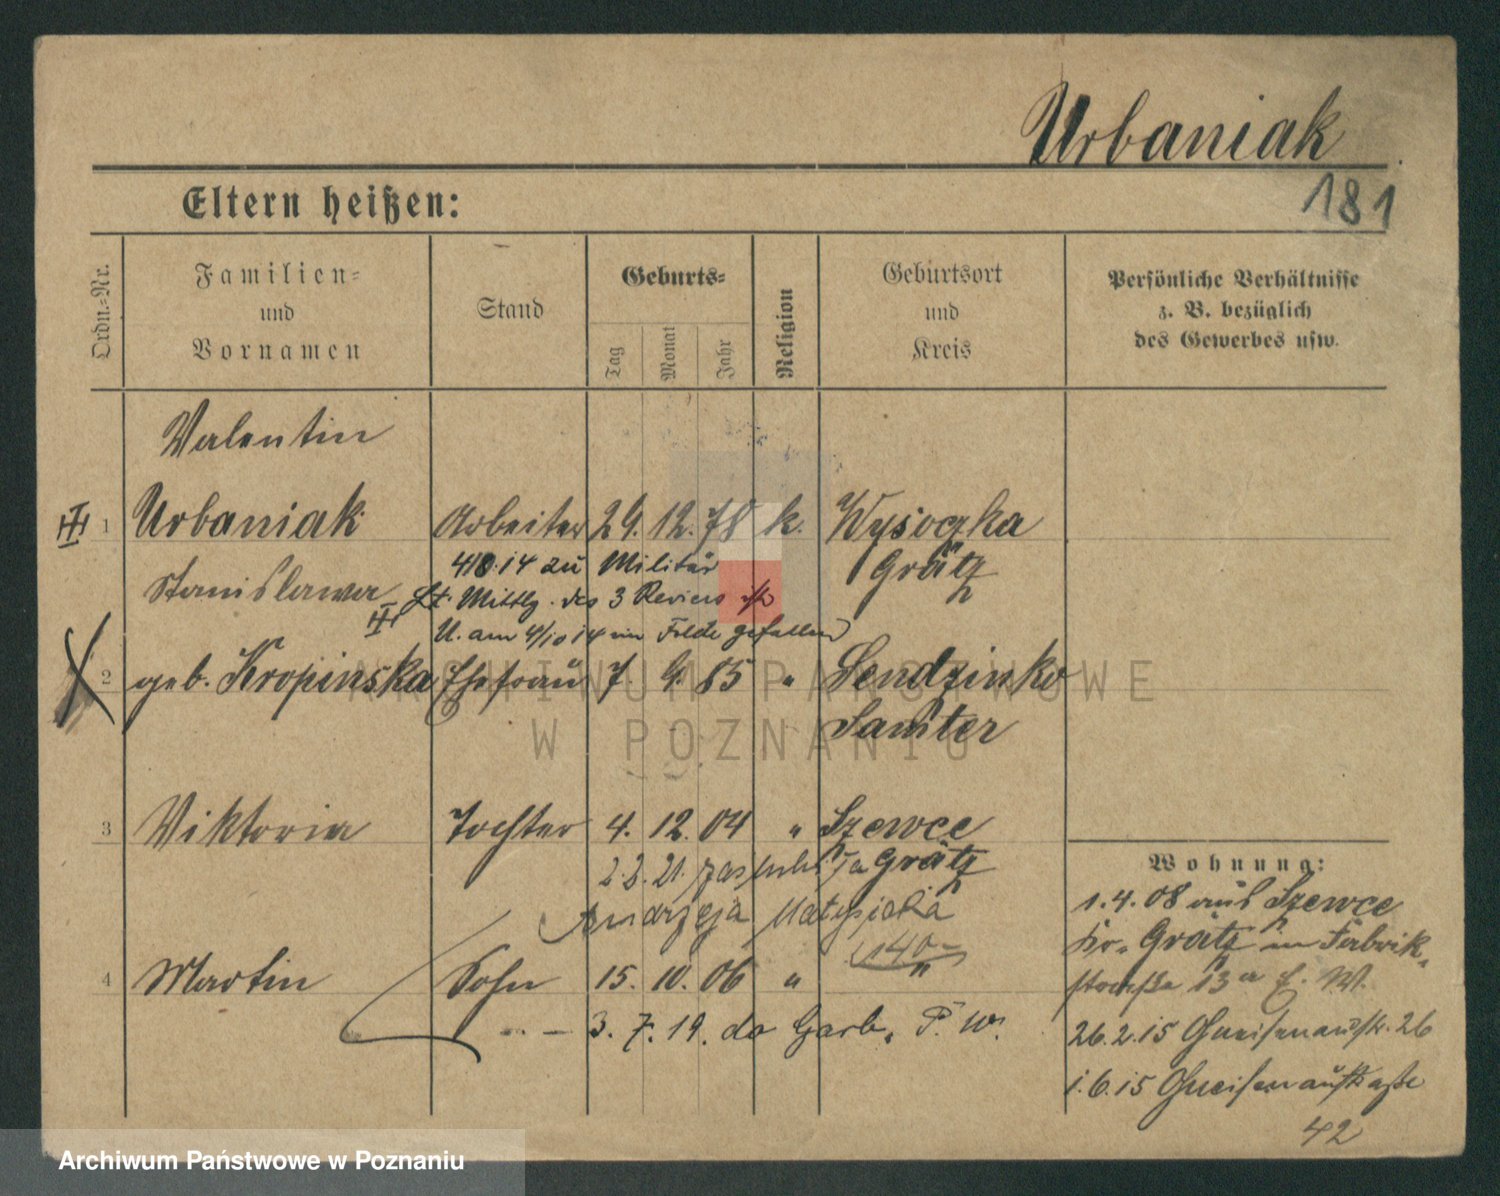 Urbaniak
181
Eltern heißen:
Ordn.-Nr.
Familien-
und
Vornamen
Stand
Geburts-
Tag
Monat
Jahr
Religion
Geburtsort
und
Kreis
Persönliche Verhältnisse
z. B. bezüglich
des Gewerbes usw.
Valentin
III 1 Urbaniak Arbeiter 29. 12. 78 k. Wysoczka
Grätz
4/8.14 zu Militär
Lt. Mittlg. des 3 Reviers ist
U. am 4/10 14 im Felde gefallen
Stanislawa
III
2 geb. Kropinska Ehefrau 7. 9. 85 " Sendzinko
Samter
3 Viktoria Tochter 4. 12. 04 " Szewce
Grätz
2.2.21. za
Andrzeja Matysiaka
140
4 Martin Sohn 15. 10. 06 " "
3. 7. 19. do Garb. P. W.
Wohnung:
1.4.08 aus Szewce
Kr. Grätz im Fabrik-
straße 13a b. W.
26.2.15 Gneisenaustr. 26
1.6.15 Gneisenaustraße
42
ARCHIWUM PAŃSTWOWE
W POZNANIU
Archiwum Państwowe w Poznaniu